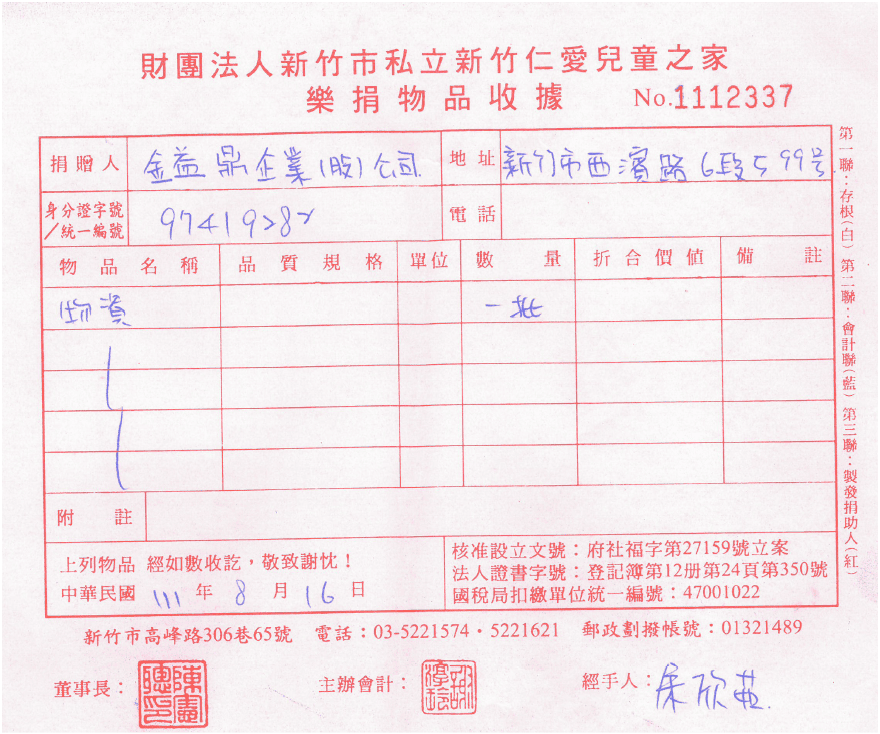 財團法人新竹市私立新竹仁愛兒童之家
樂捐物品收據 No.1112337
捐贈人 金益鼎企業(股)公司. 地址 新竹市西濱路6段599号
身分證字號/統一編號 97419282 電話
物品名稱 品質規格 單位 數量 折合價值 備註
物資 一批
附註
上列物品 經如數收訖，敬致謝忱！
中華民國 111 年 8 月 16 日
核准設立文號：府社福字第27159號立案
法人證書字號：登記簿第12册第24頁第350號
國稅局扣繳單位統一編號：47001022
新竹市高峰路306巷65號 電話：03-5221574・5221621 郵政劃撥帳號：01321489
董事長： 主辦會計： 經手人：
第一聯：存根(白) 第二聯：會計聯(藍) 第三聯：製發捐助人(紅)